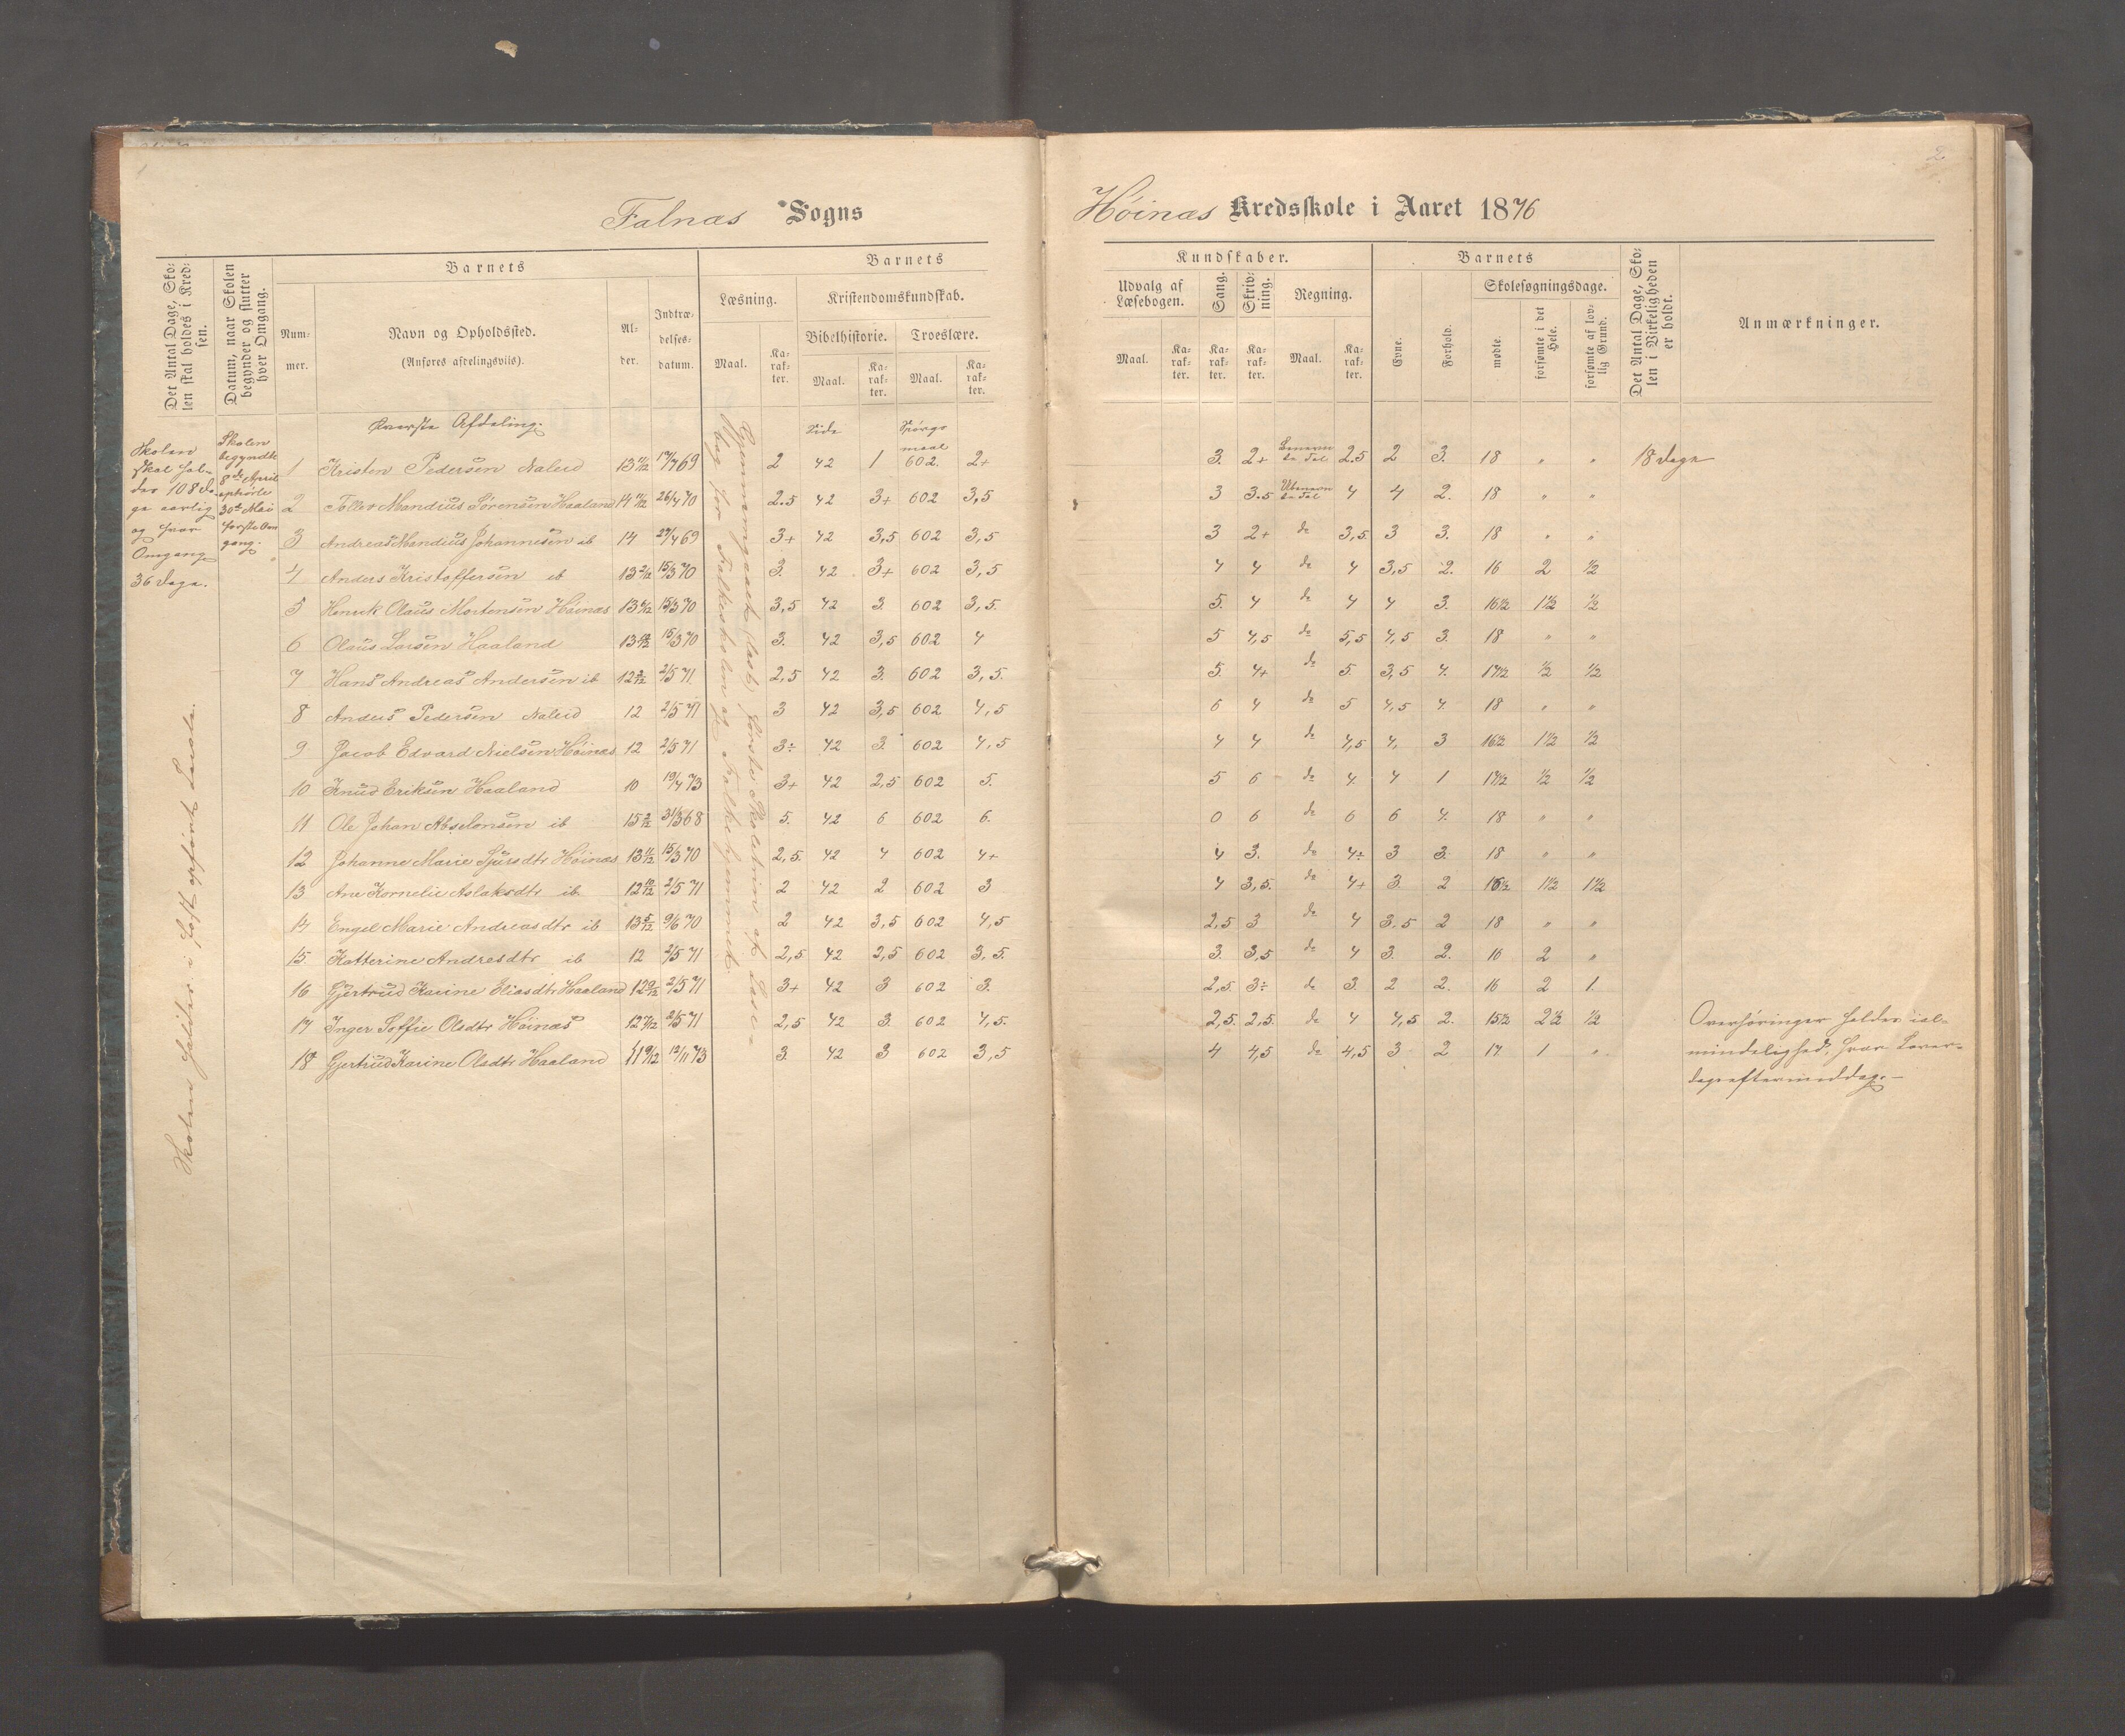 2
Falnæs Sogns
Høinæs Kredsskole i Aaret 1876
Det Antal Dage, Skolen skal holdes i Kredsen.
Datum, naar Skolen begynder og slutter hver Omgang.
Barnets
Nummer.
Navn og Opholdssted.
(Anføres afdelingsviis).
Alder.
Indtrædelsesdatum.
Barnets
Læsning.
Maal.
Karakter.
Kristendomskundskab.
Bibelhistorie.
Maal.
Karakter.
Troeslære.
Maal.
Karakter.
Kundskaber.
Udvalg af Læsebogen.
Maal.
Karakter.
Sang.
Karakter.
Skrivning.
Karakter.
Regning.
Maal.
Karakter.
Barnets
Evne.
Forhold.
Skolesøgningsdage.
mødte.
forsømte i det Hele.
forsømte af lovlig Grund.
Det Antal Dage, Skolen i Virkeligheden er holdt.
Anmærkninger.
Skolen
skal hol-
des 108 Da-
ge aarlig
og hver
Omgang
36 Dage.
Skolen
begyndte
8de April
ophørte
30te Mai
første Om
gang.
Øverste Afdeling.
Side
Spørgs
maal
1 Kristen Pedersen Naleid 13 11/12 17/4 69 2 42 1 602. 2+ 3. 2+ 2.5 2 3. 18 " " 18 Dage
2 Toller Mandius Sørensen Haaland 14 26/4 70 2.5 42 3+ 602 3,5 3 3.5 4 4 2. 18 " "
3 Andreas Mandius Johannesen ib 14 27/4 69 3+ 42 3,5 602 3,5 3 2+ do 3,5 3 3. 18 " "
4 Anders Kristoffersen ib 13 2/12 15/3 70 3. 42 3+ 602 3,5 4 4 do 4 3,5 2. 16 2 1/2
5 Henrik Olaus Mortensen Høinæs 13 15/3 70 3,5 42 3. 602 3,5. 5. 4 do 4 4 3. 16 1/2 1 1/2 1/2
6 Olaus Larsen Haaland 13 15/3 70 3. 42 3,5 602 4 5 4,5 do 5,5 4,5 3. 18 " "
7 Hans Andreas Andersen ib 12 2/5 71 2,5 42 3. 602 3,5. 5. 4+ do 5. 3,5 4. 17 1/2 1/2 1/2
8 Anders Pedersen Naleid 12 2/5 71 3 42 3,5 602 4,5 6 4 do 5 4,5 4. 18 " "
9 Jacob Edvard Nielsen Høinæs 12 2/5 71 3÷ 42 3. 602 4,5 4 4 do 4,5 4. 3 16 1/2 1 1/2 1/2
10 Knud Eriksen Haaland 10 19/4 73 3+ 42 2,5 602 5. 5 6 do 4. 4 1 17 1/2 1/2 1/2
11 Ole Johan Abselonsen ib 15 31/3 68 5. 42 6 602 6. 0 6 do 6 6 4. 18 " "
12 Johanne Marie Sjursdtr Høinæs 13 15/3 70 2,5. 42 4 602 4+ 4 3. do 4÷ 3 3. 18 " "
13 Ane Kornelie Aslaksdtr ib 12 10/12 2/5 71 2 42 2 602 3 4 3,5. do 4+ 3. 2 16 1/2 1 1/2 1 1/2
14 Engel Marie Andreasdtr ib 13 5/12 9/6 70 2 42 3,5 602 4,5 2,5 3 do 4 3.5 2 18 " "
15. Katterine Andresdtr ib 12 2/5 71 2,5 42 2,5 602 3,5. 3. 3,5 do 4 3. 2. 16 2 "
16 Gjertrud Karine Eliasdtr Haaland 12 9/12 2/5 71 3+ 42 3 602 3. 2,5. 3÷ do 3. 2 2. 16 2 1.
17 Inger Soffie Olsdtr Høinæs 12 7/12 2/5 71 2,5 42 3. 602 4,5. 2,5. 2,5. do 4 4,5 2. 15 1/2 2 1/2 1/2
18 Gjertrud Karine Olsdtr Haaland 11 9/12 12/11 73 3. 42 3 602 3,5 4 4,5 do 4,5 3 2 17 1 "
Overhøringer holdes ial-
mindelighed, hver Løver-
dagseftermiddag.—
Skolen holdes i fast opført Locale.